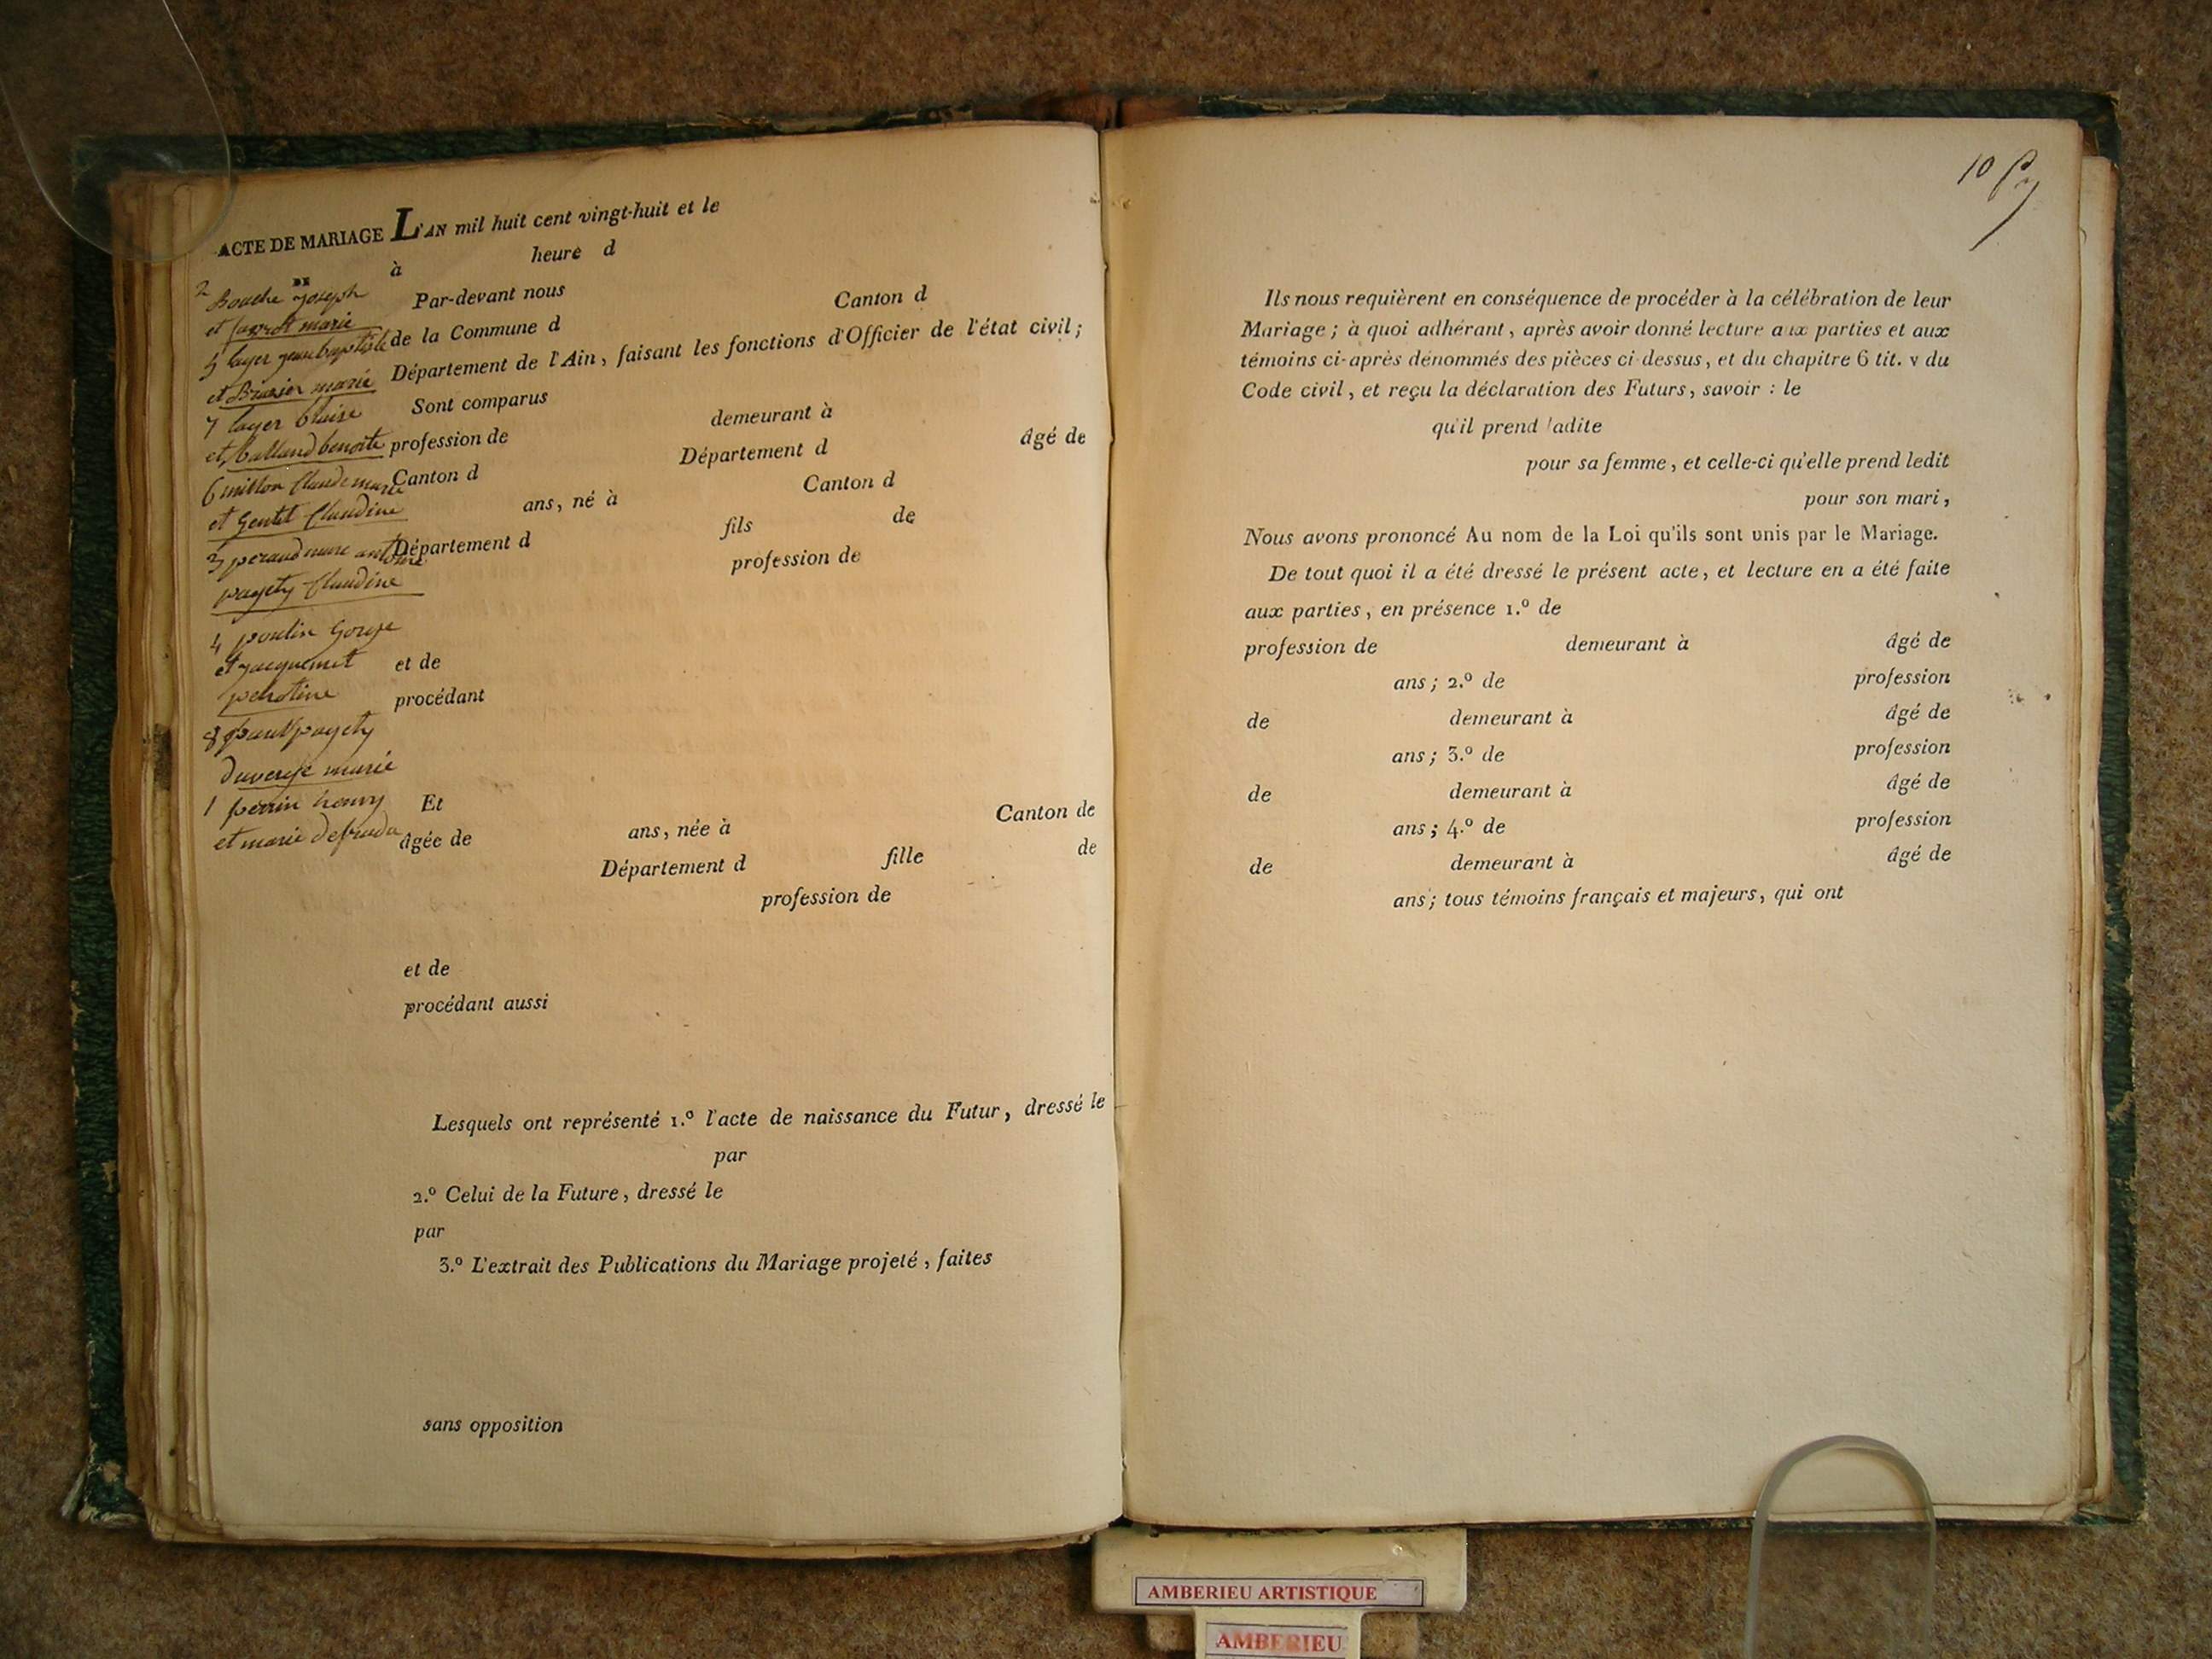 ACTE DE MARIAGE L'AN mil huit cent vingt-huit et le
à heure d
DE
2 Bouche Joseph
et marie
5 layer jean baptiste
et Brasier marie
7 layer blaise
et balland benoite
6 millon Claude marie
et Gentet Claudine
3 peraud marc antoine
payety Claudine
4
et jacquemet
8 payety
marie
1 perrin henry
et marie
Par-devant nous
de la Commune d Canton d
Département de l'Ain, faisant les fonctions d'Officier de l'état civil;
Sont comparus
profession de demeurant à
Canton d Département d âgé de
ans, né à Canton d
Département d fils de
profession de
et de
procédant
Et
âgée de ans, née à Canton de
Département d fille de
profession de
et de
procédant aussi
Lesquels ont représenté 1.º l'acte de naissance du Futur, dressé le
par
2.º Celui de la Future, dressé le
par
3.º L'extrait des Publications du Mariage projeté, faites
sans opposition
10
Ils nous requièrent en conséquence de procéder à la célébration de leur
Mariage; à quoi adhérant, après avoir donné lecture aux parties et aux
témoins ci-après dénommés des pièces ci-dessus, et du chapitre 6 tit. v du
Code civil, et reçu la déclaration des Futurs, savoir : le
qu'il prend ladite
pour sa femme, et celle-ci qu'elle prend ledit
pour son mari,
Nous avons prononcé Au nom de la Loi qu'ils sont unis par le Mariage.
De tout quoi il a été dressé le présent acte, et lecture en a été faite
aux parties, en présence 1.º de
profession de demeurant à âgé de
ans; 2.º de profession
de demeurant à âgé de
ans; 3.º de profession
de demeurant à âgé de
ans; 4.º de profession
de demeurant à âgé de
ans; tous témoins français et majeurs, qui ont
AMBERIEU ARTISTIQUE
AMBERIEU